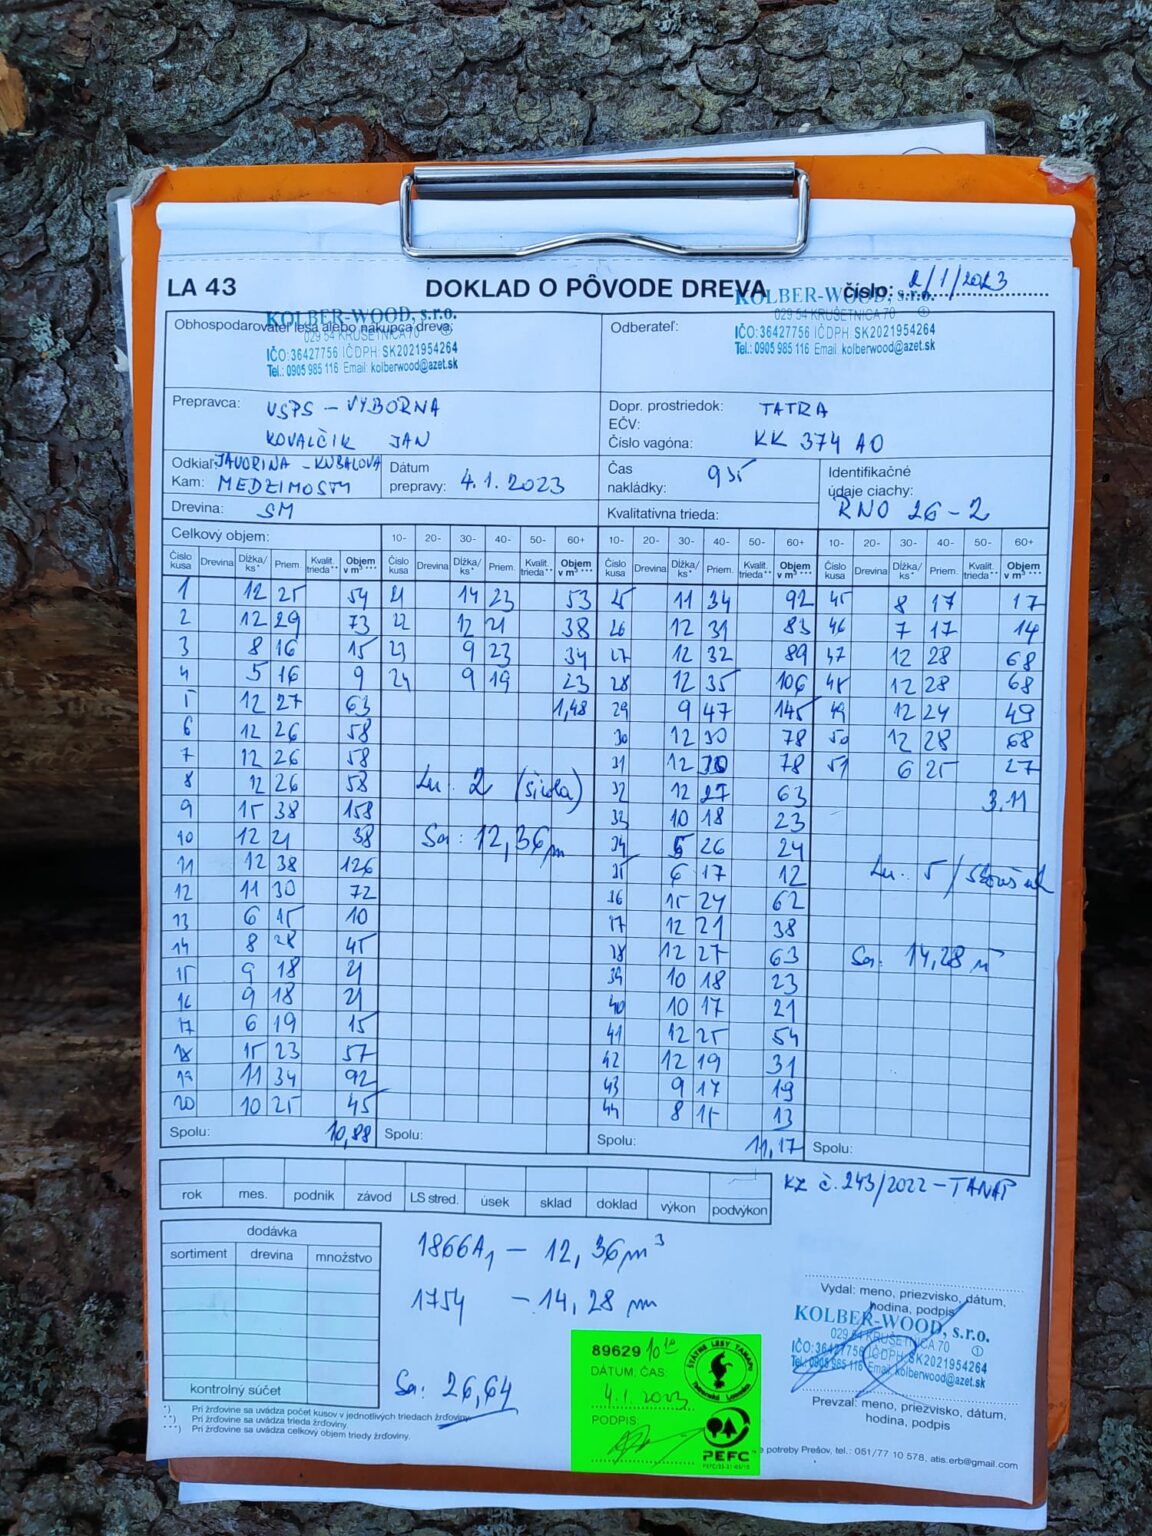 LA 43 DOKLAD O PÔVODE DREVA číslo: 2/1/2023
Obhospodarovateľ lesa alebo nákupca dreva:
KOLBER-WOOD, s.r.o.
029 54 KRUŠETNICA 70 ①
IČO:36427756 IČDPH SK2021954264
Tel.: 0905 985 116 Email: kolberwood@azet.sk
Odberateľ:
KOLBER-WOOD, s.r.o.
029 54 KRUŠETNICA 70 ①
IČO:36427756 IČDPH SK2021954264
Tel.: 0905 985 116 Email: kolberwood@azet.sk
Prepravca: USPS - VÝBORNA
KOVALČIK JAN
Dopr. prostriedok: TATRA
EČV:
Číslo vagóna: KK 374 AO
Odkiaľ: JAVORINA - KUBALOVA
Kam: MEDZIMOSTY
Dátum
prepravy: 4.1.2023
Čas
nakládky: 9 35
Identifikačné
údaje ciachy:
RNO 26-2
Drevina: SM
Kvalitatívna trieda:
Celkový objem:
10- 20- 30- 40- 50- 60+ 10- 20- 30- 40- 50- 60+ 10- 20- 30- 40- 50- 60+
Číslo kusa Drevina Dĺžka/ ks* Priem. Kvalit. trieda** Objem v m³*** Číslo kusa Drevina Dĺžka/ ks* Priem. Kvalit. trieda** Objem v m³*** Číslo kusa Drevina Dĺžka/ ks* Priem. Kvalit. trieda** Objem v m³*** Číslo kusa Drevina Dĺžka/ ks* Priem. Kvalit. trieda** Objem v m³***
1 12 25 54 21 14 23 53 25 11 34 92 45 8 17 17
2 12 29 73 22 12 21 38 26 12 31 83 46 7 17 14
3 8 16 15 23 9 23 34 27 12 32 89 47 12 28 68
4 5 16 9 24 9 19 23 28 12 35 106 48 12 28 68
5 12 27 63 1,48 29 9 47 145 49 12 24 49
6 12 26 58 30 12 30 78 50 12 28 68
7 12 26 58 31 12 30 78 51 6 25 27
8 12 26 58 32 12 27 63 3.11
9 15 38 158 33 10 18 23
10 12 21 38 Sa: 12,36 m 34 5 26 24
11 12 38 126 35 6 17 12
12 11 30 72 36 15 24 62
13 6 15 10 37 12 21 38
14 8 28 45 38 12 27 63 Sa: 14,28 m
15 9 18 21 39 10 18 23
16 9 18 21 40 10 17 21
17 6 19 15 41 12 25 54
18 15 23 57 42 12 19 31
19 11 34 92 43 9 17 19
20 10 25 45 44 8 15 13
Spolu: 10,88 Spolu: Spolu: 11,17 Spolu:
rok mes. podnik závod LS stred. úsek sklad doklad výkon podvýkon
KZ č. 243/2022 - TANAP
dodávka
sortiment drevina množstvo
kontrolný súčet
1866A1 - 12,36 m³
1754 - 14,28 m
Sa: 26,64
Vydal: meno, priezvisko, dátum,
hodina, podpis
KOLBER-WOOD, s.r.o.
029 54 KRUŠETNICA 70 ①
IČO:36427756 IČDPH SK2021954264
Tel.: 0905 985 116 Email: kolberwood@azet.sk
Prevzal: meno, priezvisko, dátum,
hodina, podpis
89629 10 10
DÁTUM, ČAS:
4.1.2023
PODPIS
ŠTÁTNE LESY TANAPu
Tatranská Lomnica
PEFC
*) Pri žrďovine sa uvádza počet kusov v jednotlivých triedach žrďoviny
**) Pri žrďovine sa uvádza trieda žrďoviny.
***) Pri žrďovine sa uvádza celkový objem triedy žrďoviny.
e potreby Prešov, tel.: 051/77 10 578, atis.erb@gmail.com